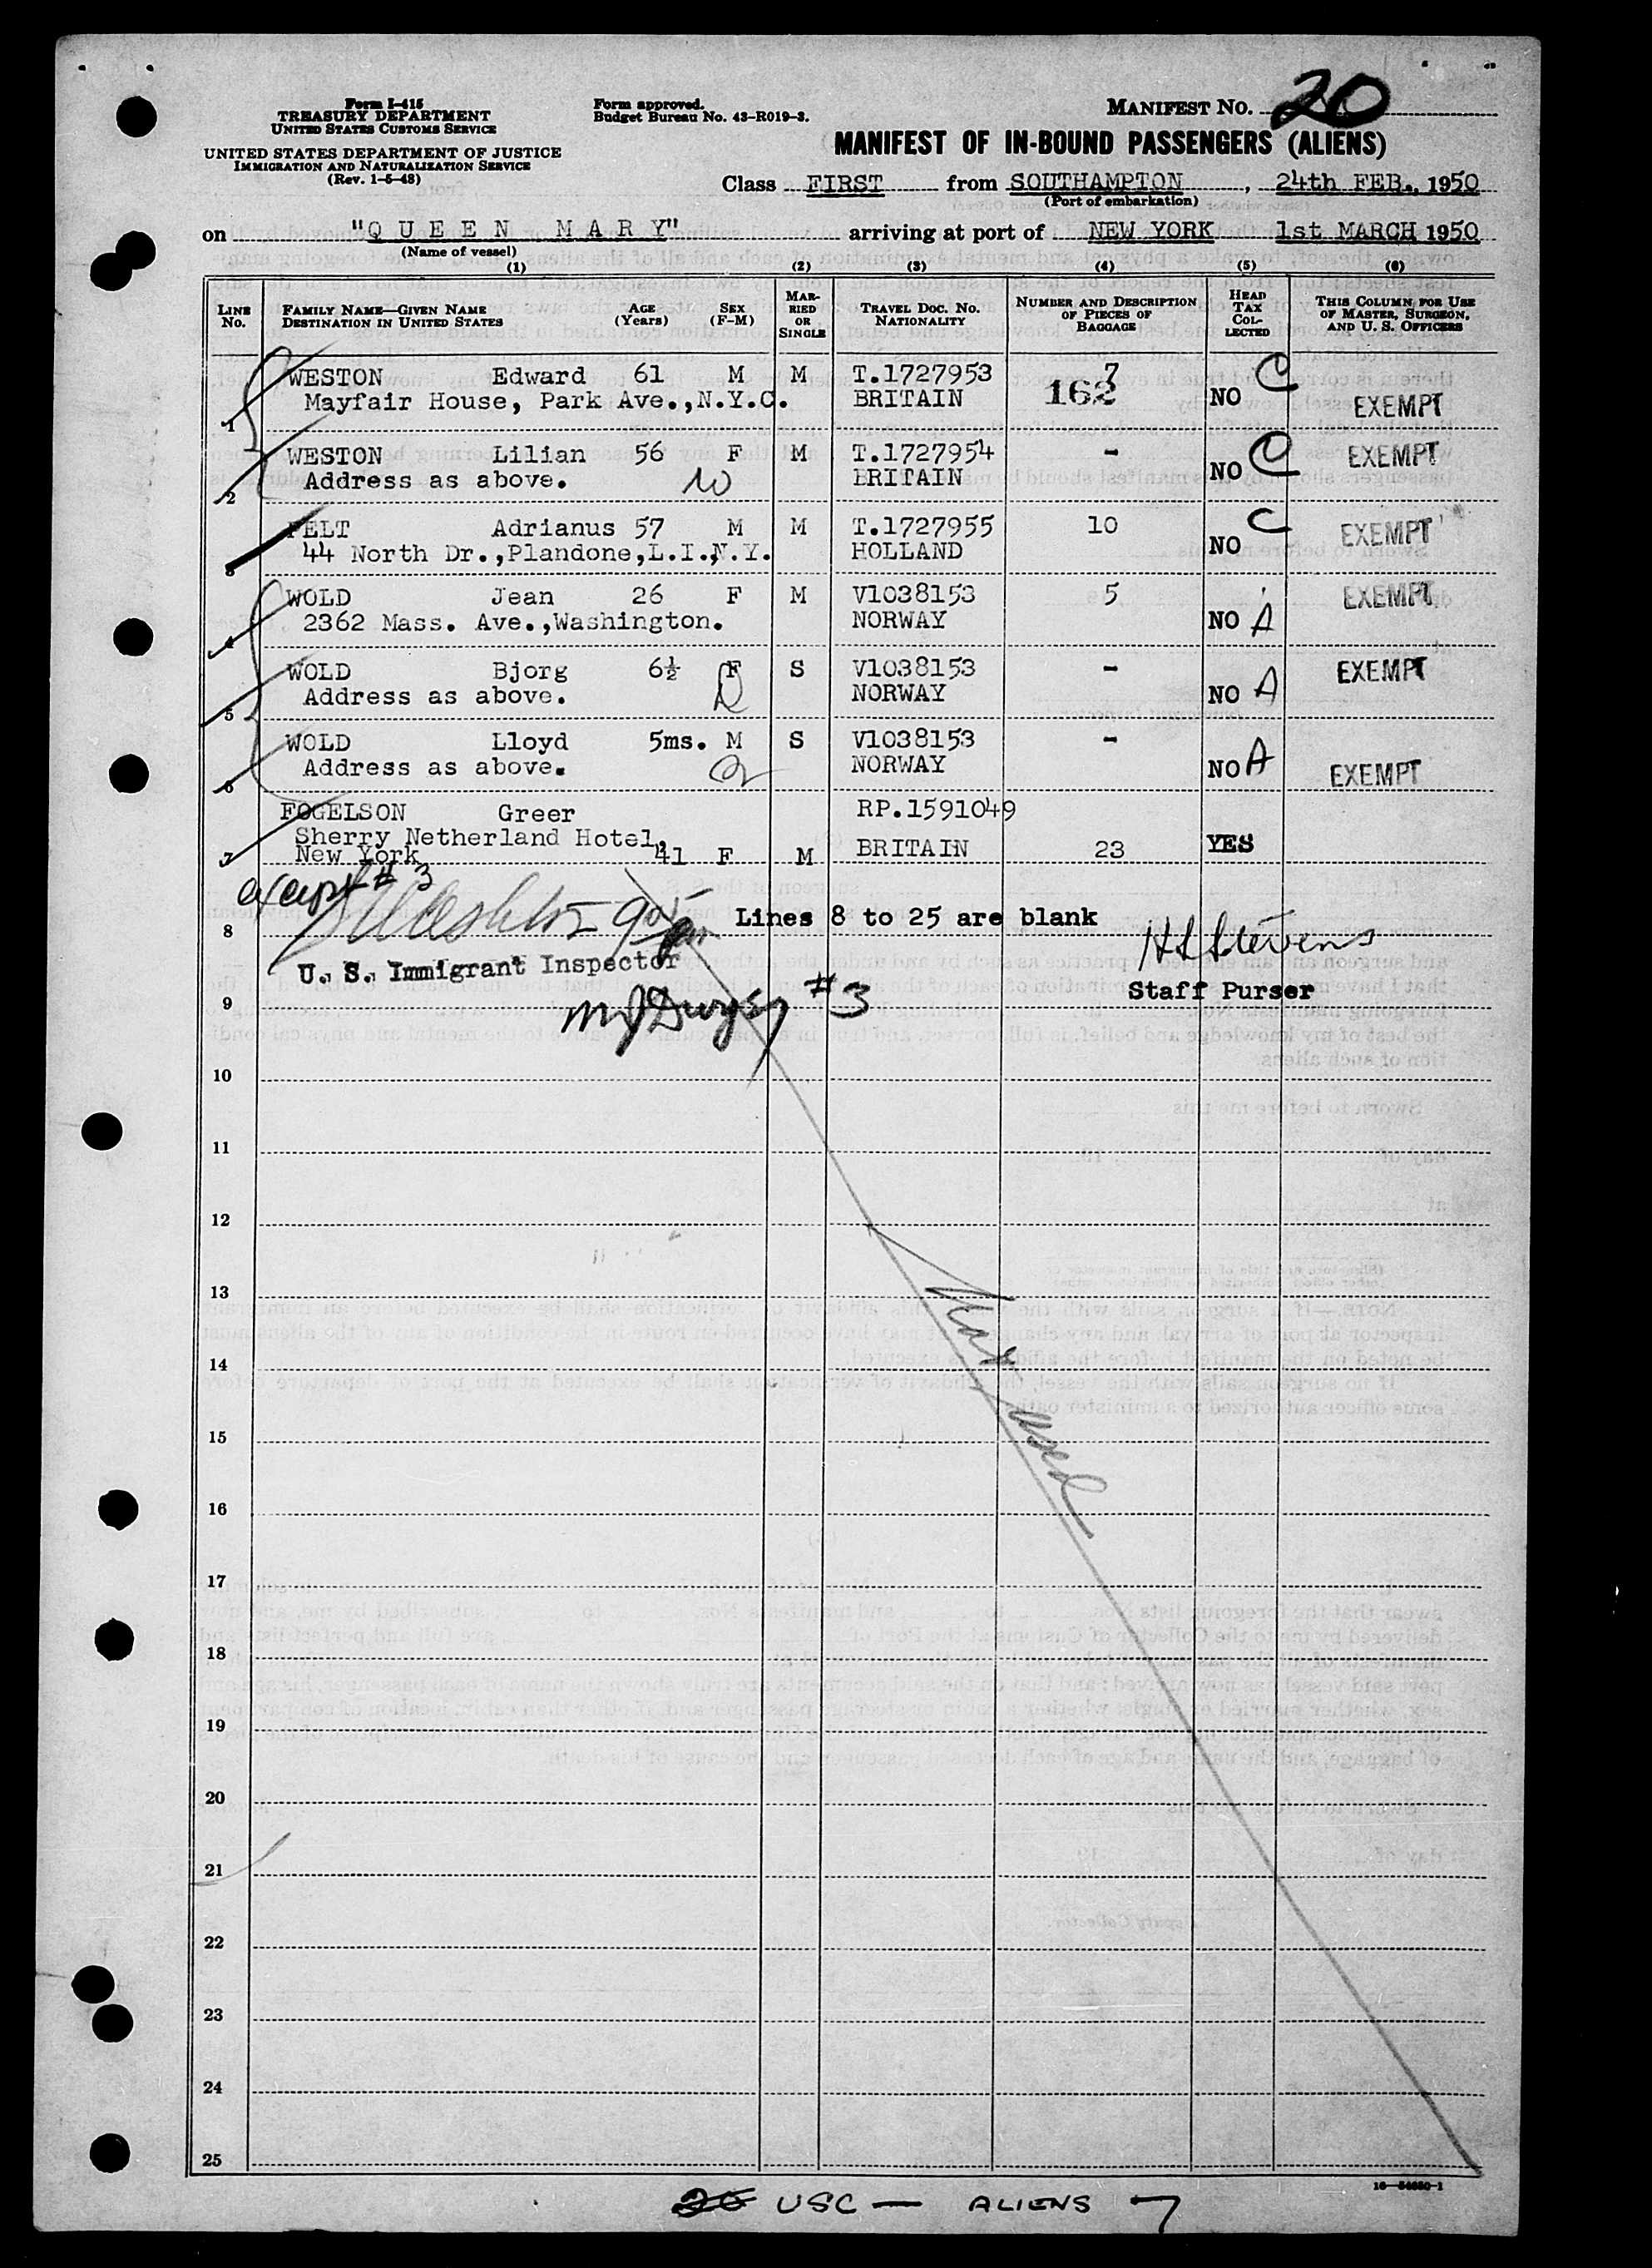 Form I-415
TREASURY DEPARTMENT
UNITED STATES CUSTOMS SERVICE
UNITED STATES DEPARTMENT OF JUSTICE
IMMIGRATION AND NATURALIZATION SERVICE
(Rev. 1-5-48)
Form approved.
Budget Bureau No. 43-R019-3.
MANIFEST NO. 20
MANIFEST OF IN-BOUND PASSENGERS (ALIENS)
Class FIRST from SOUTHAMPTON, 24th FEB., 1950
(Port of embarkation)
on "QUEEN MARY" arriving at port of NEW YORK 1st MARCH 1950
(Name of vessel)
(1) (2) (3) (4) (5) (6)
LINE No. FAMILY NAME—GIVEN NAME DESTINATION IN UNITED STATES AGE (Years) SEX (F-M) MARRIED OR SINGLE TRAVEL DOC. NO. NATIONALITY NUMBER AND DESCRIPTION OF PIECES OF BAGGAGE HEAD TAX COLLECTED THIS COLUMN FOR USE OF MASTER, SURGEON, AND U. S. OFFICERS
WESTON Edward 61 M M T.1727953 7 C
1 Mayfair House, Park Ave.,N.Y.C. BRITAIN 162 NO EXEMPT
WESTON Lilian 56 F M T.1727954 - C EXEMPT
2 Address as above. 10 BRITAIN NO
PELT Adrianus 57 M M T.1727955 10 C EXEMPT
3 44 North Dr.,Plandone,L.I.,N.Y. HOLLAND NO
WOLD Jean 26 F M V1038153 5 EXEMPT
4 2362 Mass. Ave.,Washington. NORWAY NO A
WOLD Bjorg 6½ F S V1038153 - EXEMPT
5 Address as above. NORWAY NO A
WOLD Lloyd 5ms. M S V1038153 -
6 Address as above. NORWAY NO A EXEMPT
FOGELSON Greer RP.1591049
Sherry Netherland Hotel,
7 New York 41 F M BRITAIN 23 YES
except # 3
8 Lines 8 to 25 are blank HLStevens
U. S. Immigrant Inspector
Staff Purser
9 MJDwyer #3
10
11
12
13
14
Not used
15
16
17
18
19
20
21
22
23
24
25
16—54650-1
20 USC — ALIENS 7